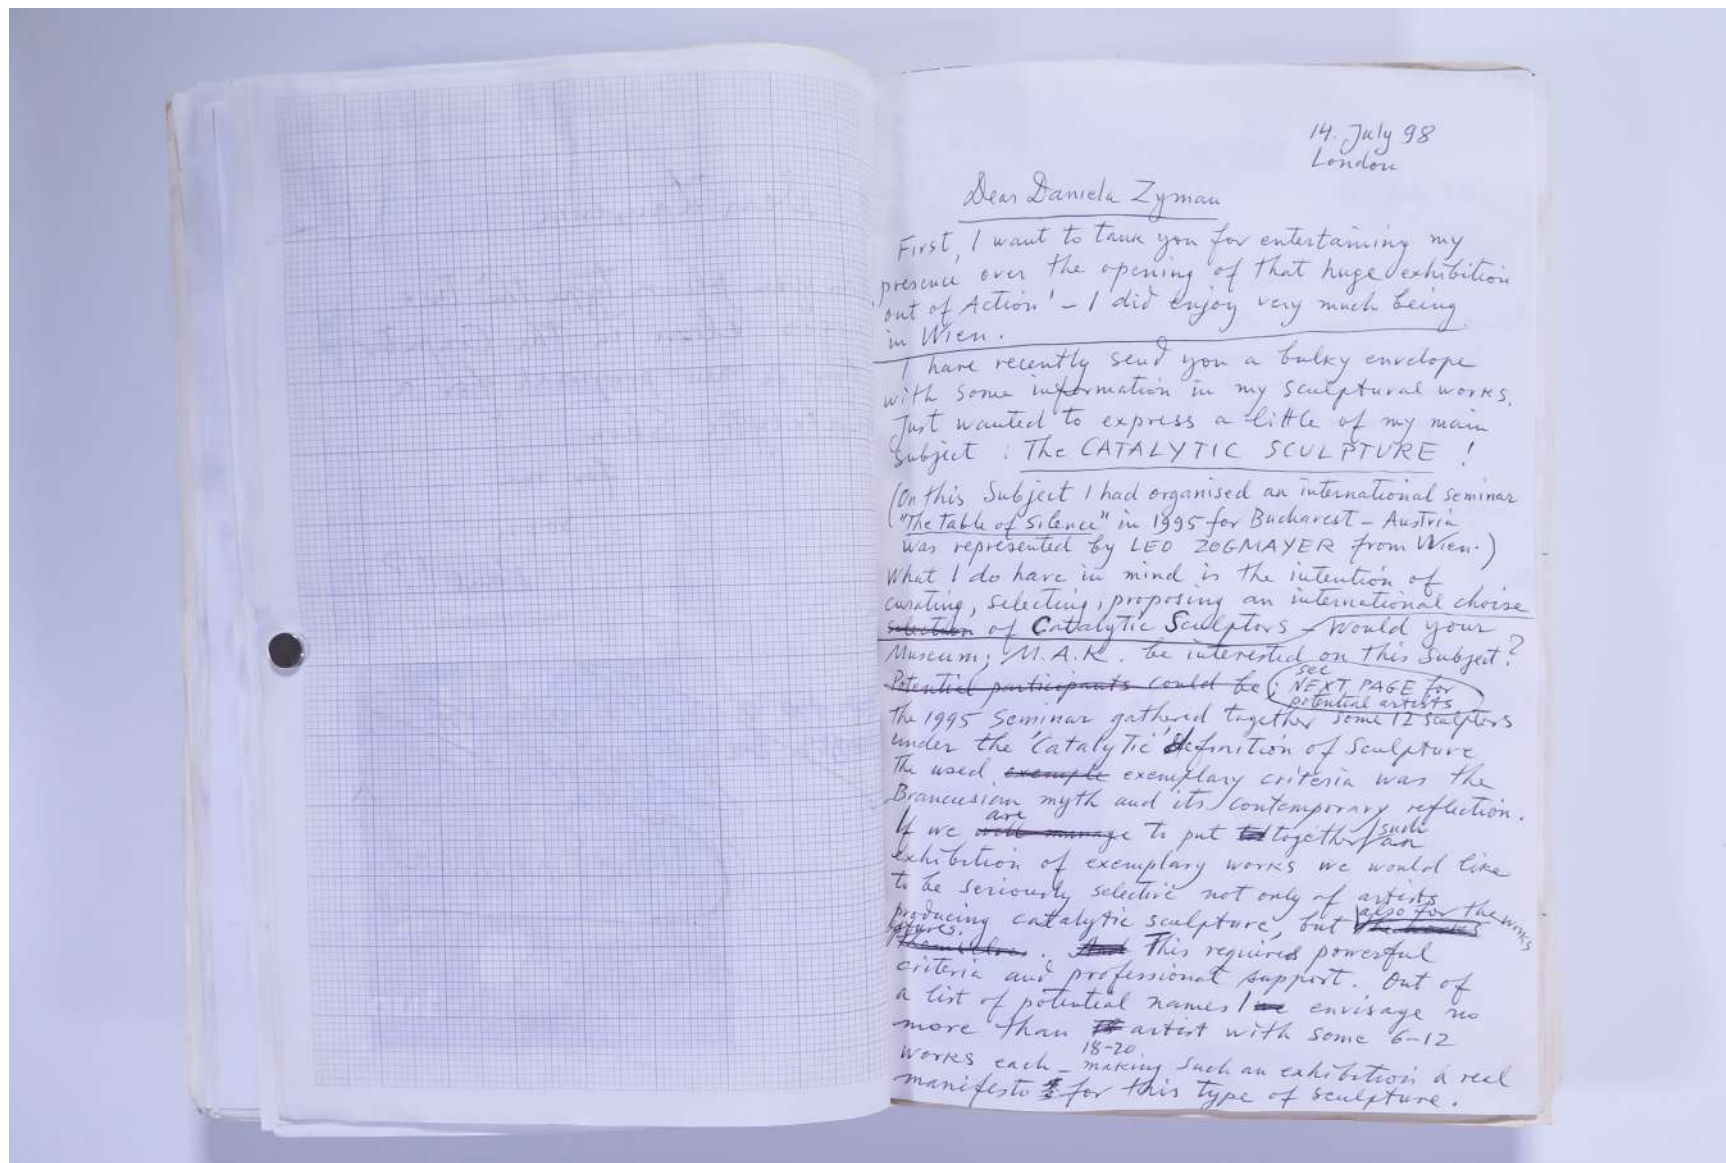 14. July 98
London
Dear Daniela Zyman
First, I want to tank you for entertaining my
presence over the opening of that huge exhibition
out of Action' – I did enjoy very much being
in Wien.
I have recently send you a bulky envelope
with some information in my sculptural works.
Just wanted to express a little of my main
subject : The CATALYTIC SCULPTURE !
(On this Subject I had organised an international seminar
"The Table of Silence" in 1995 for Bucharest – Austria
was represented by LEO ZOGMAYER from Wien.)
What I do have in mind is the intention of
curating, selecting, proposing an international choise
selection of Catalytic Sculptors – Would your
Museum; M.A.K. be interested on this Subject?
Potential participants could be : see
NEXT PAGE for
potential artists
The 1995 Seminar gathered together some 12 sculptors
under the 'Catalytic' definition of Sculpture
The used example exemplary criteria was the
Brancusian myth and its contemporary reflection.
are
If we will manage to put together such an
exhibition of exemplary works we would like
to be seriously selective not only of artists
producing catalytic sculpture, but also for the works
the works
themselves. And This requires powerful
criteria and professional support. Out of
a list of potential names I envisage no
more than artist with some 6-12
18-20
works each – making such an exhibition a real
manifesto for this type of sculpture.